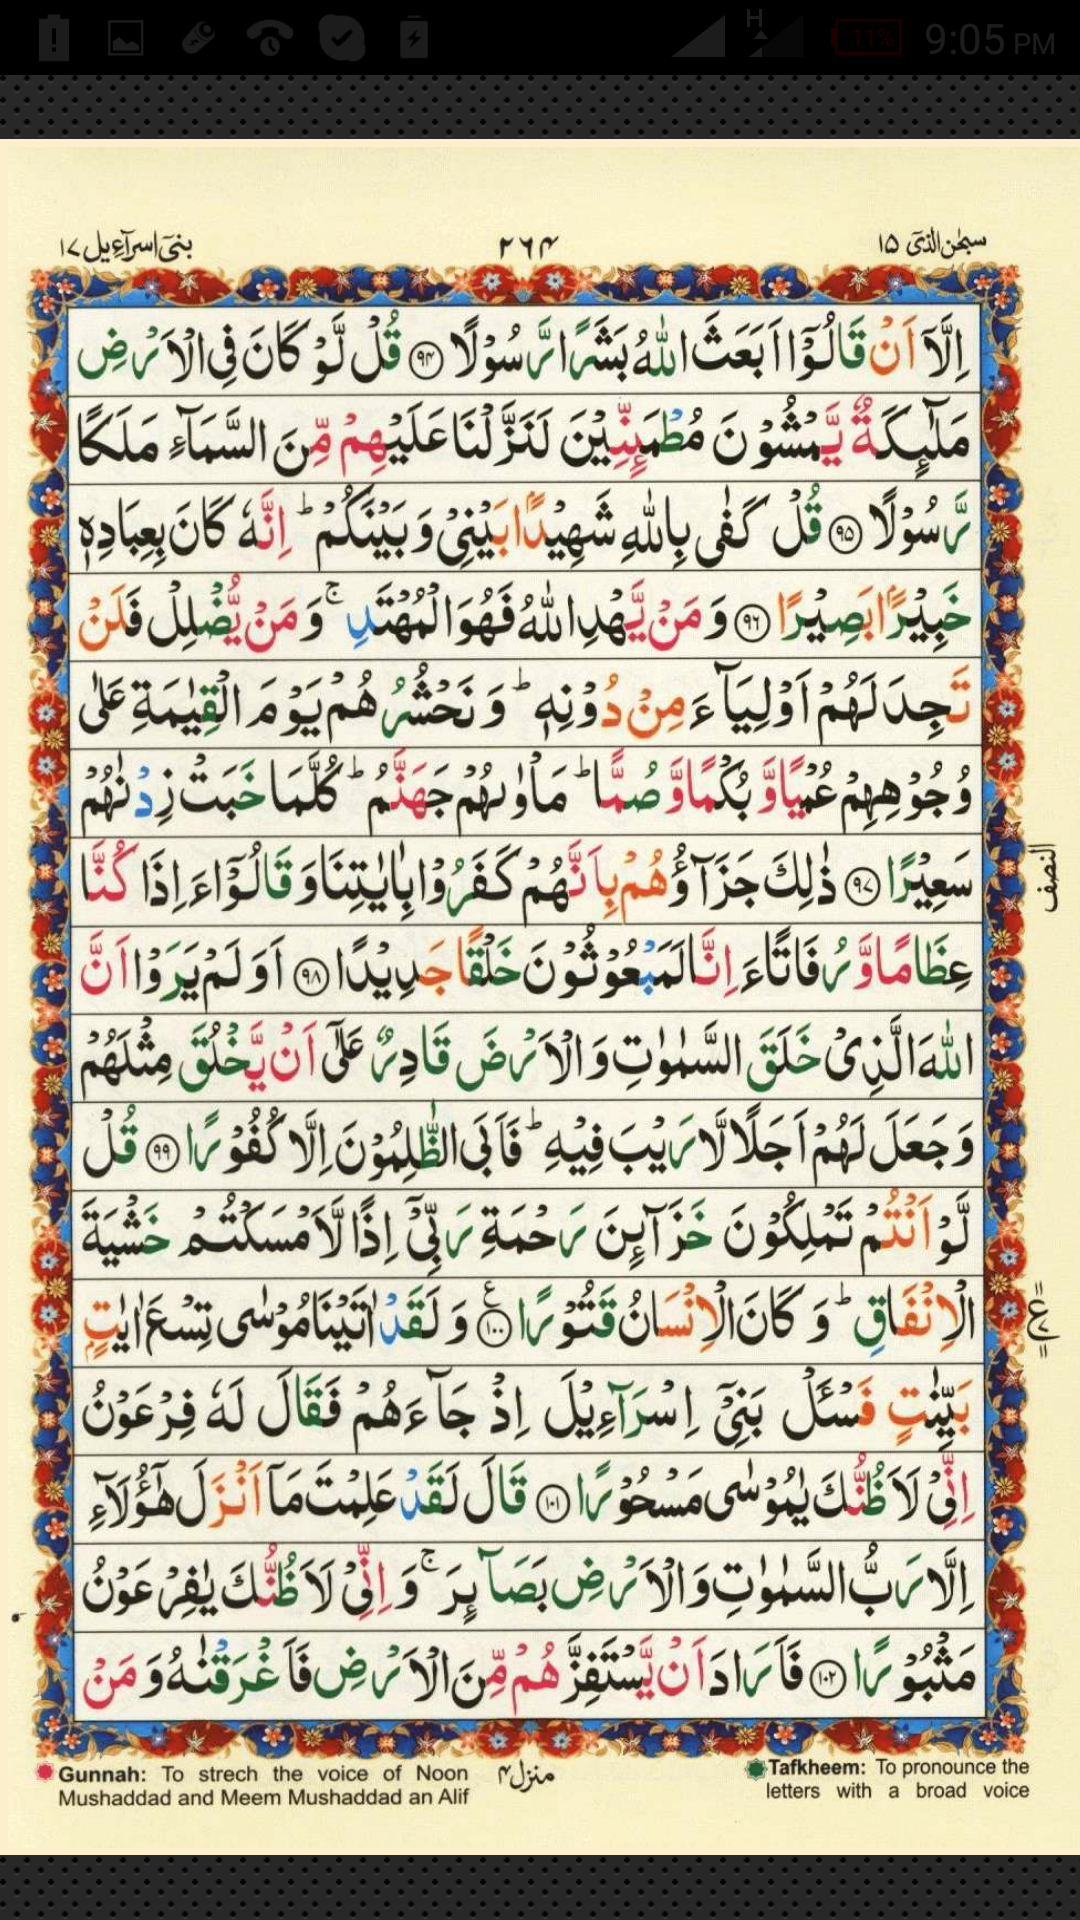 9:05 PM
H
11%
سبحٰن الذیٓ ۱۵
۲۶۴
بنیٓ اسرآءیل ۱۷
اِلَّاۤ اَنْ قَالُوْۤا اَبَعَثَ اللّٰهُ بَشَرًا رَّسُوْلًا ﴿۹۴﴾ قُلْ لَّوْ كَانَ فِی الْاَرْضِ
مَلٰٓىِٕكَةٌ یَّمْشُوْنَ مُطْمَىِٕنِّیْنَ لَنَزَّلْنَا عَلَیْهِمْ مِّنَ السَّمَآءِ مَلَكًا
رَّسُوْلًا ﴿۹۵﴾ قُلْ كَفٰی بِاللّٰهِ شَهِیْدًۢا بَیْنِیْ وَ بَیْنَكُمْ ؕ اِنَّهٗ كَانَ بِعِبَادِهٖ
خَبِیْرًۢا بَصِیْرًا ﴿۹۶﴾ وَ مَنْ یَّهْدِ اللّٰهُ فَهُوَ الْمُهْتَدِ ۚ وَ مَنْ یُّضْلِلْ فَلَنْ
تَجِدَ لَهُمْ اَوْلِیَآءَ مِنْ دُوْنِهٖ ؕ وَ نَحْشُرُهُمْ یَوْمَ الْقِیٰمَةِ عَلٰی
وُجُوْهِهِمْ عُمْیًا وَّ بُكْمًا وَّ صُمًّا ؕ مَاْوٰىهُمْ جَهَنَّمُ ؕ كُلَّمَا خَبَتْ زِدْنٰهُمْ
سَعِیْرًا ﴿۹۷﴾ ذٰلِكَ جَزَآؤُهُمْ بِاَنَّهُمْ كَفَرُوْا بِاٰیٰتِنَا وَ قَالُوْۤا ءَاِذَا كُنَّا
النصف
عِظَامًا وَّ رُفَاتًا ءَاِنَّا لَمَبْعُوْثُوْنَ خَلْقًا جَدِیْدًا ﴿۹۸﴾ اَوَ لَمْ یَرَوْا اَنَّ
اللّٰهَ الَّذِیْ خَلَقَ السَّمٰوٰتِ وَ الْاَرْضَ قَادِرٌ عَلٰۤی اَنْ یَّخْلُقَ مِثْلَهُمْ
وَ جَعَلَ لَهُمْ اَجَلًا لَّا رَیْبَ فِیْهِ ؕ فَاَبَی الظّٰلِمُوْنَ اِلَّا كُفُوْرًا ﴿۹۹﴾ قُلْ
لَّوْ اَنْتُمْ تَمْلِكُوْنَ خَزَآىِٕنَ رَحْمَةِ رَبِّیْۤ اِذًا لَّاَمْسَكْتُمْ خَشْیَةَ
الْاِنْفَاقِ ؕ وَ كَانَ الْاِنْسَانُ قَتُوْرًا ﴿۱۰۰﴾ ع وَ لَقَدْ اٰتَیْنَا مُوْسٰی تِسْعَ اٰیٰتٍۭ
بَیِّنٰتٍ فَسْـَٔلْ بَنِیْۤ اِسْرَآءِیْلَ اِذْ جَآءَهُمْ فَقَالَ لَهٗ فِرْعَوْنُ
اِنِّیْ لَاَظُنُّكَ یٰمُوْسٰی مَسْحُوْرًا ﴿۱۰۱﴾ قَالَ لَقَدْ عَلِمْتَ مَاۤ اَنْزَلَ هٰۤؤُلَآءِ
اِلَّا رَبُّ السَّمٰوٰتِ وَ الْاَرْضِ بَصَآىِٕرَ ۚ وَ اِنِّیْ لَاَظُنُّكَ یٰفِرْعَوْنُ
مَثْبُوْرًا ﴿۱۰۲﴾ فَاَرَادَ اَنْ یَّسْتَفِزَّهُمْ مِّنَ الْاَرْضِ فَاَغْرَقْنٰهُ وَ مَنْ
Gunnah: To strech the voice of Noon
Mushaddad and Meem Mushaddad an Alif
منزل ۴
Tafkheem: To pronounce the
letters with a broad voice